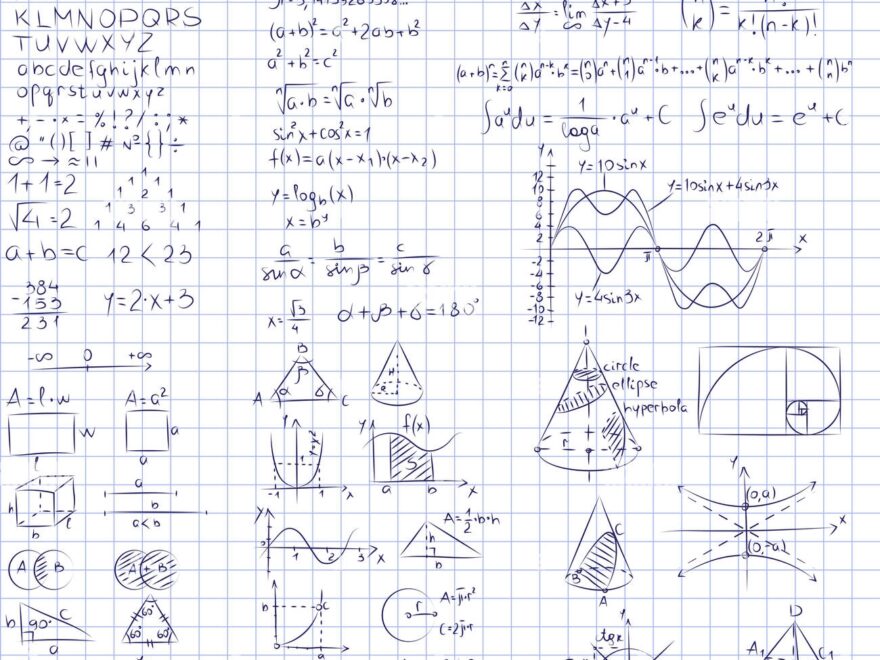 KLMNOPQRS
TUVWXYZ
abcdefghijklmn
opqrstuvwxyz
+, - · × = % ! ? / : ; *
@ "()[ ] # № { } ÷
∞ → ≈ ||
1+1=2
1 1
1 2 1
1 3 3 1
1 4 6 4 1
√4=2
a+b=c 12<23
384
-153
231
y=2·x+3
-∞ 0 +∞
A=l·w
w
l
A=a²
a
a
h
b
l
a
b
a<b
A B
A + B
b 90° c
a
60°
60° 60°
(a+b)²=a²+2ab+b²
a²+b²=c²
ⁿ√a·b=ⁿ√a·ⁿ√b
sin²x+cos²x=1
f(x)=a(x-x₁)·(x-x₂)
y=log_b(x)
x=b^y
a/sinα = b/sinβ = c/sin γ
x=√3/4
α+β+δ=180°
B
β
A α δ C
H
y
1
-1 1 x
y f(x)
S
a b x
y
0 1 2 3 x
A=½·b·h
h
b
b c
a
r
A=π·r²
C=2π·r
Δx/Δy = lim
∞
Δy-4
(n k) = k!(n-k)!
(a+b)ⁿ=∑(n k)a^n-k·b^k=(n 0)aⁿ+(n 1)a^n-1·b+...+(n k)a^n-k·b^k+...+(n n)bⁿ
k=0
∫a^u du = 1/loga · a^u + C
∫e^u du = e^u + C
y
y=10sinx
y=10sinx+4sin3x
12
10
8
6
4
2
-2
-4
-6
-8
-10
-12
π 2π x
y=4sin3x
circle
ellipse
hyperbola
r
y
(0,a)
x
(0,-a)
C
B
A
y
tgx
D
A₁ C₁